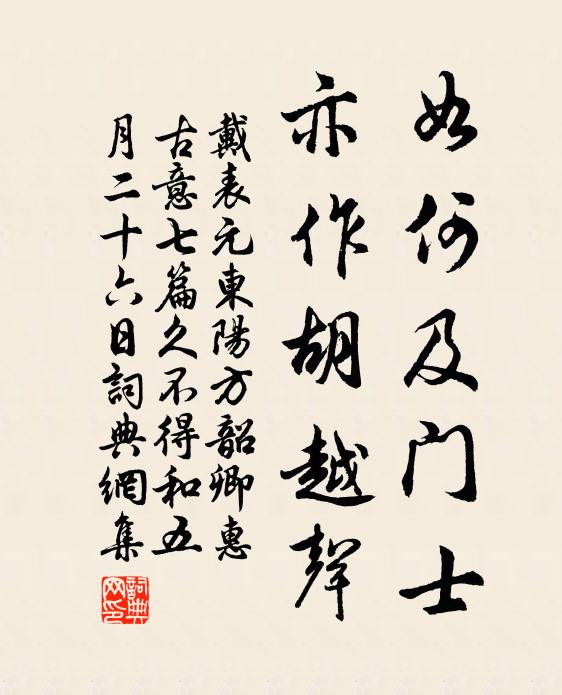 如何及门士
亦作胡越聲
戴表元東陽方韶卿惠
古意七篇久不得和五
月二十六日詞典網集
詞典網印